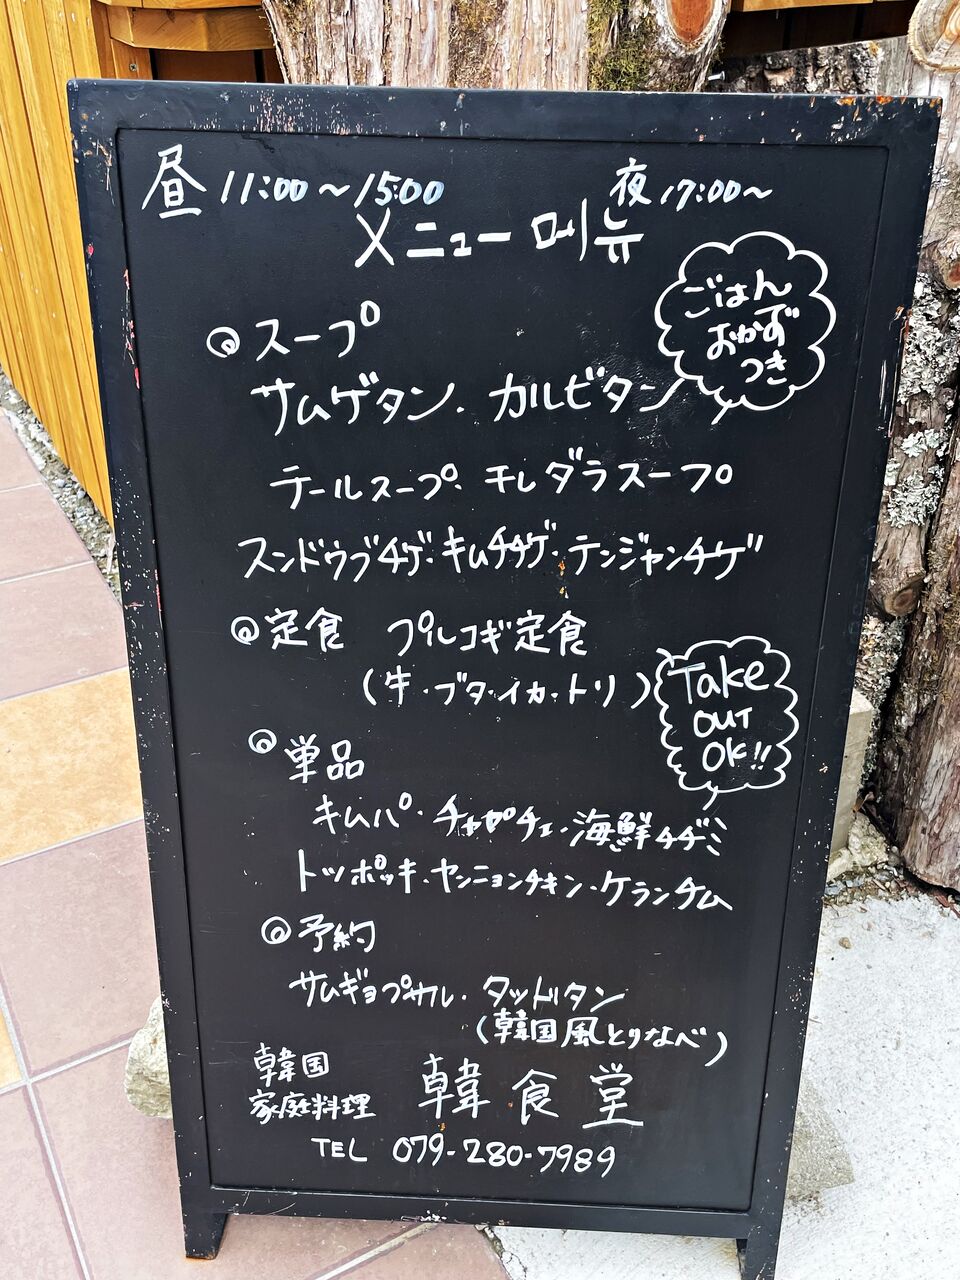 昼 11:00～15:00 夜 17:00～
メニュー 메뉴
ごはん
おかず
つき
◎スープ
サムゲタン・カルビタン
テールスープ・モレダラスープ
スンドゥブチゲ・キムチチゲ・テンジャンチゲ
◎定食 プルコギ定食
(牛・ブタ・イカ・トリ)
Take
OUT
OK!!
◎単品
キムパ・チャプチェ・海鮮チヂミ
トッポッキ・ヤンニョンチキン・ケランチム
◎予約
サムギョプサル・タットリタン
(韓国風とりなべ)
韓国
家庭料理
韓食堂
TEL 079-280-7989